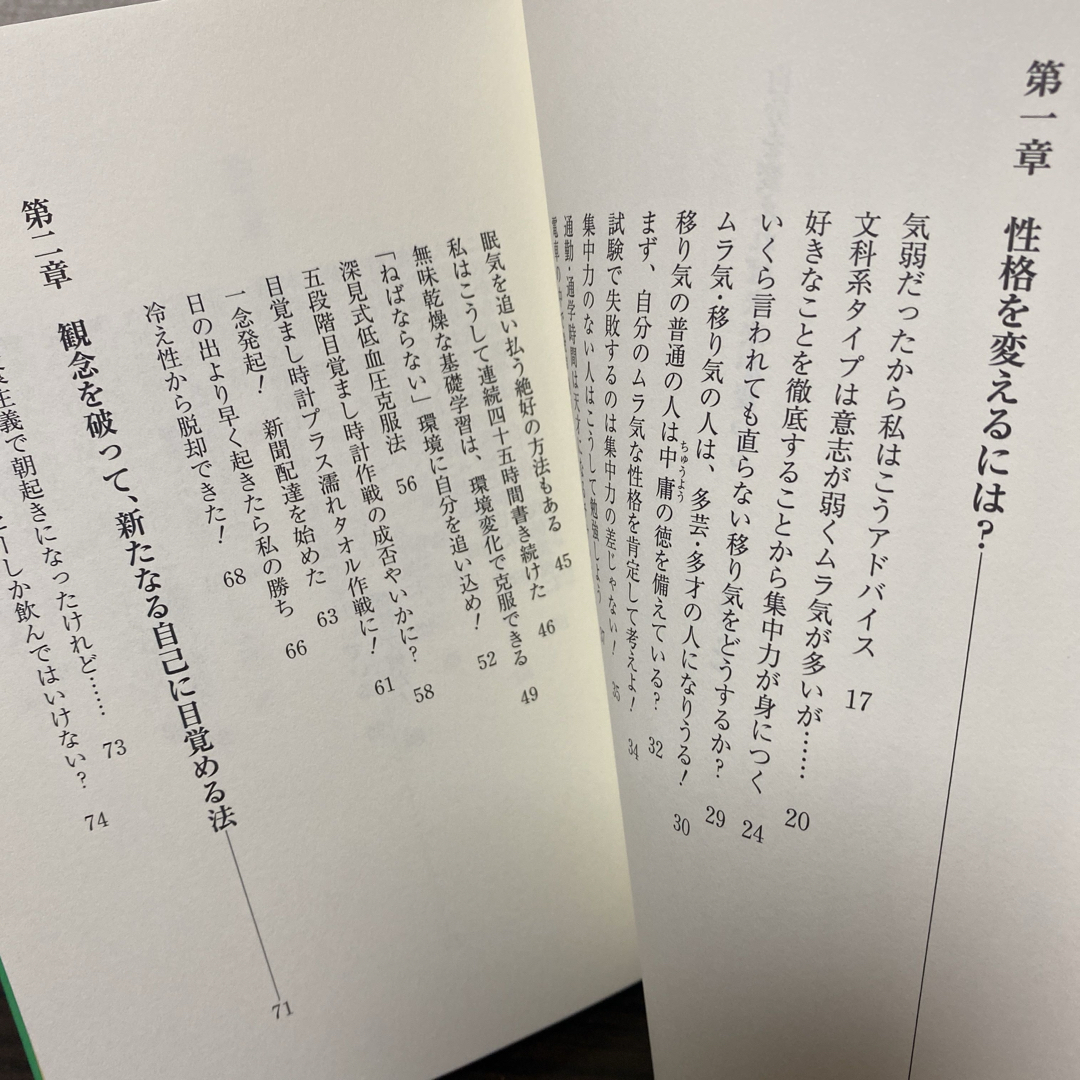 第一章　性格を変えるには？
気弱だったから私はこうアドバイス　17
文科系タイプは意志が弱くムラ気が多いが……　20
好きなことを徹底することから集中力が身につく　24
いくら言われても直らない移り気をどうするか？　29
ムラ気・移り気の人は、多芸・多才の人になりうる！　30
移り気の普通の人は中庸の徳を備えている？　32
ちゅうよう
まず、自分のムラ気な性格を肯定して考えよ！　34
試験で失敗するのは集中力の差じゃない！　35
集中力のない人はこうして勉強しよう
通勤・通学時間は天
電車の中
眠気を追い払う絶好の方法もある　45
私はこうして連続四十五時間書き続けた　46
無味乾燥な基礎学習は、環境変化で克服できる　49
「ねばならない」環境に自分を追い込め！　52
深見式低血圧克服法　56
五段階目覚まし時計作戦の成否やいかに？　58
目覚まし時計プラス濡れタオル作戦に！　61
一念発起！　新聞配達を始めた　63
日の出より早く起きたら私の勝ち　66
冷え性から脱却できた！　68
第二章　観念を破って、新たなる自己に目覚める法　71
主義で朝起きになったけれど……　73
ーしか飲んではいけない？　74